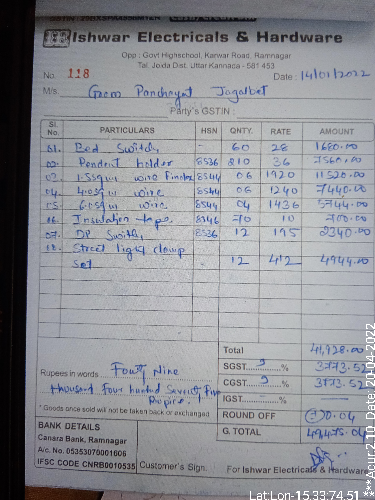 GSTIN : 29DXSPR
Cash/Credit Bill
Ishwar Electricals & Hardware
Opp : Govt Highschool, Karwar Road, Ramnagar
Tal. Joida Dist. Uttar Kannada - 581 453
No. 118 Date : 14/01/2022
M/s. Gram Panchayat Jagalbet
Party's GSTIN :
Sl. No. PARTICULARS HSN QNTY. RATE AMOUNT
01. Bed Switch - 60 28 1680.00
02. Pendent holder 8536 210 36 7560.00
03. 1.5Sqm wire Finolex 8544 06 1920 11520.00
04. 4.0Sqm wire 8544 06 1240 7440.00
05. 6.0Sqm wire 8544 04 1436 5744.00
06. Insulation tape 8546 70 10 700.00
07. DP Switch 8536 12 195 2340.00
18. Street light clamp
Set 12 412 4944.00
Total 41,928.00
SGST 9 % 3773.52
CGST 9 % 3773.52
IGST %
ROUND OFF (-) 0.04
G. TOTAL 49475.04
Rupees in words Fourty Nine
thousand four hundred Seventy Five
Rupice.
* Goods once sold will not be taken back or exchanged
BANK DETAILS
Canara Bank, Ramnagar
A/c. No. 05353070001606
IFSC CODE CNRB0010535
Customer's Sign.
For Ishwar Electricals & Hardware
Lat:Lon-15.33:74.51
***Acur:2.10 Date: 20-04-2022